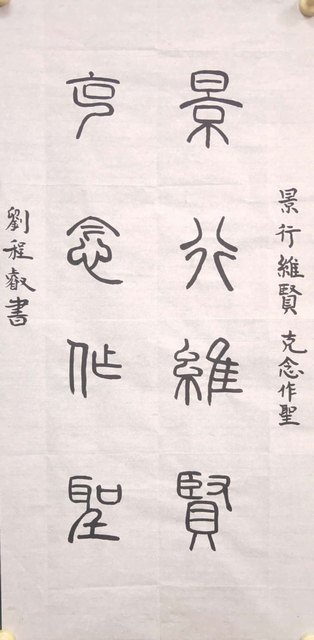 景行維賢 克念作聖
景行維賢
克念作聖
劉程叡書